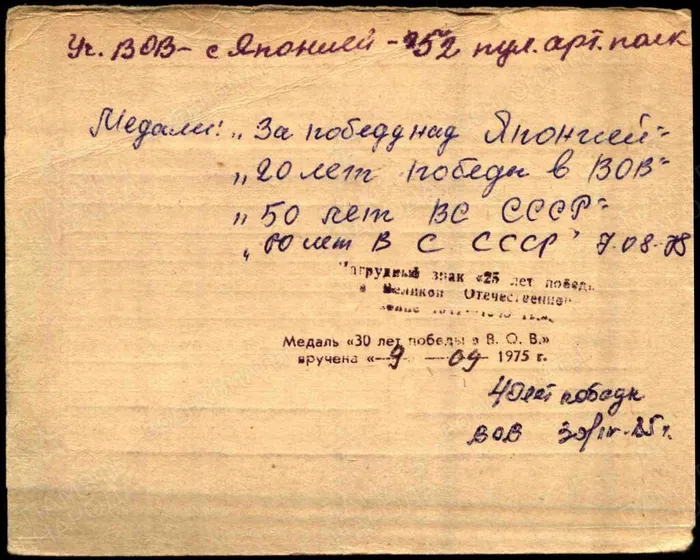 Уч. ВОВ - с Японией - 252 пул. арт. полк
Медали: „За победу над Японией"
„20 лет победы в ВОВ"
„50 лет ВС СССР"
„60 лет В С СССР" 7.08.78
Нагрудный знак «25 лет победы
в Великой Отечественной
войне
Медаль «30 лет победы в В. О. В.»
вручена «9 09 1975 г.
40 лет победы
ВОВ 30/IV-85 г.